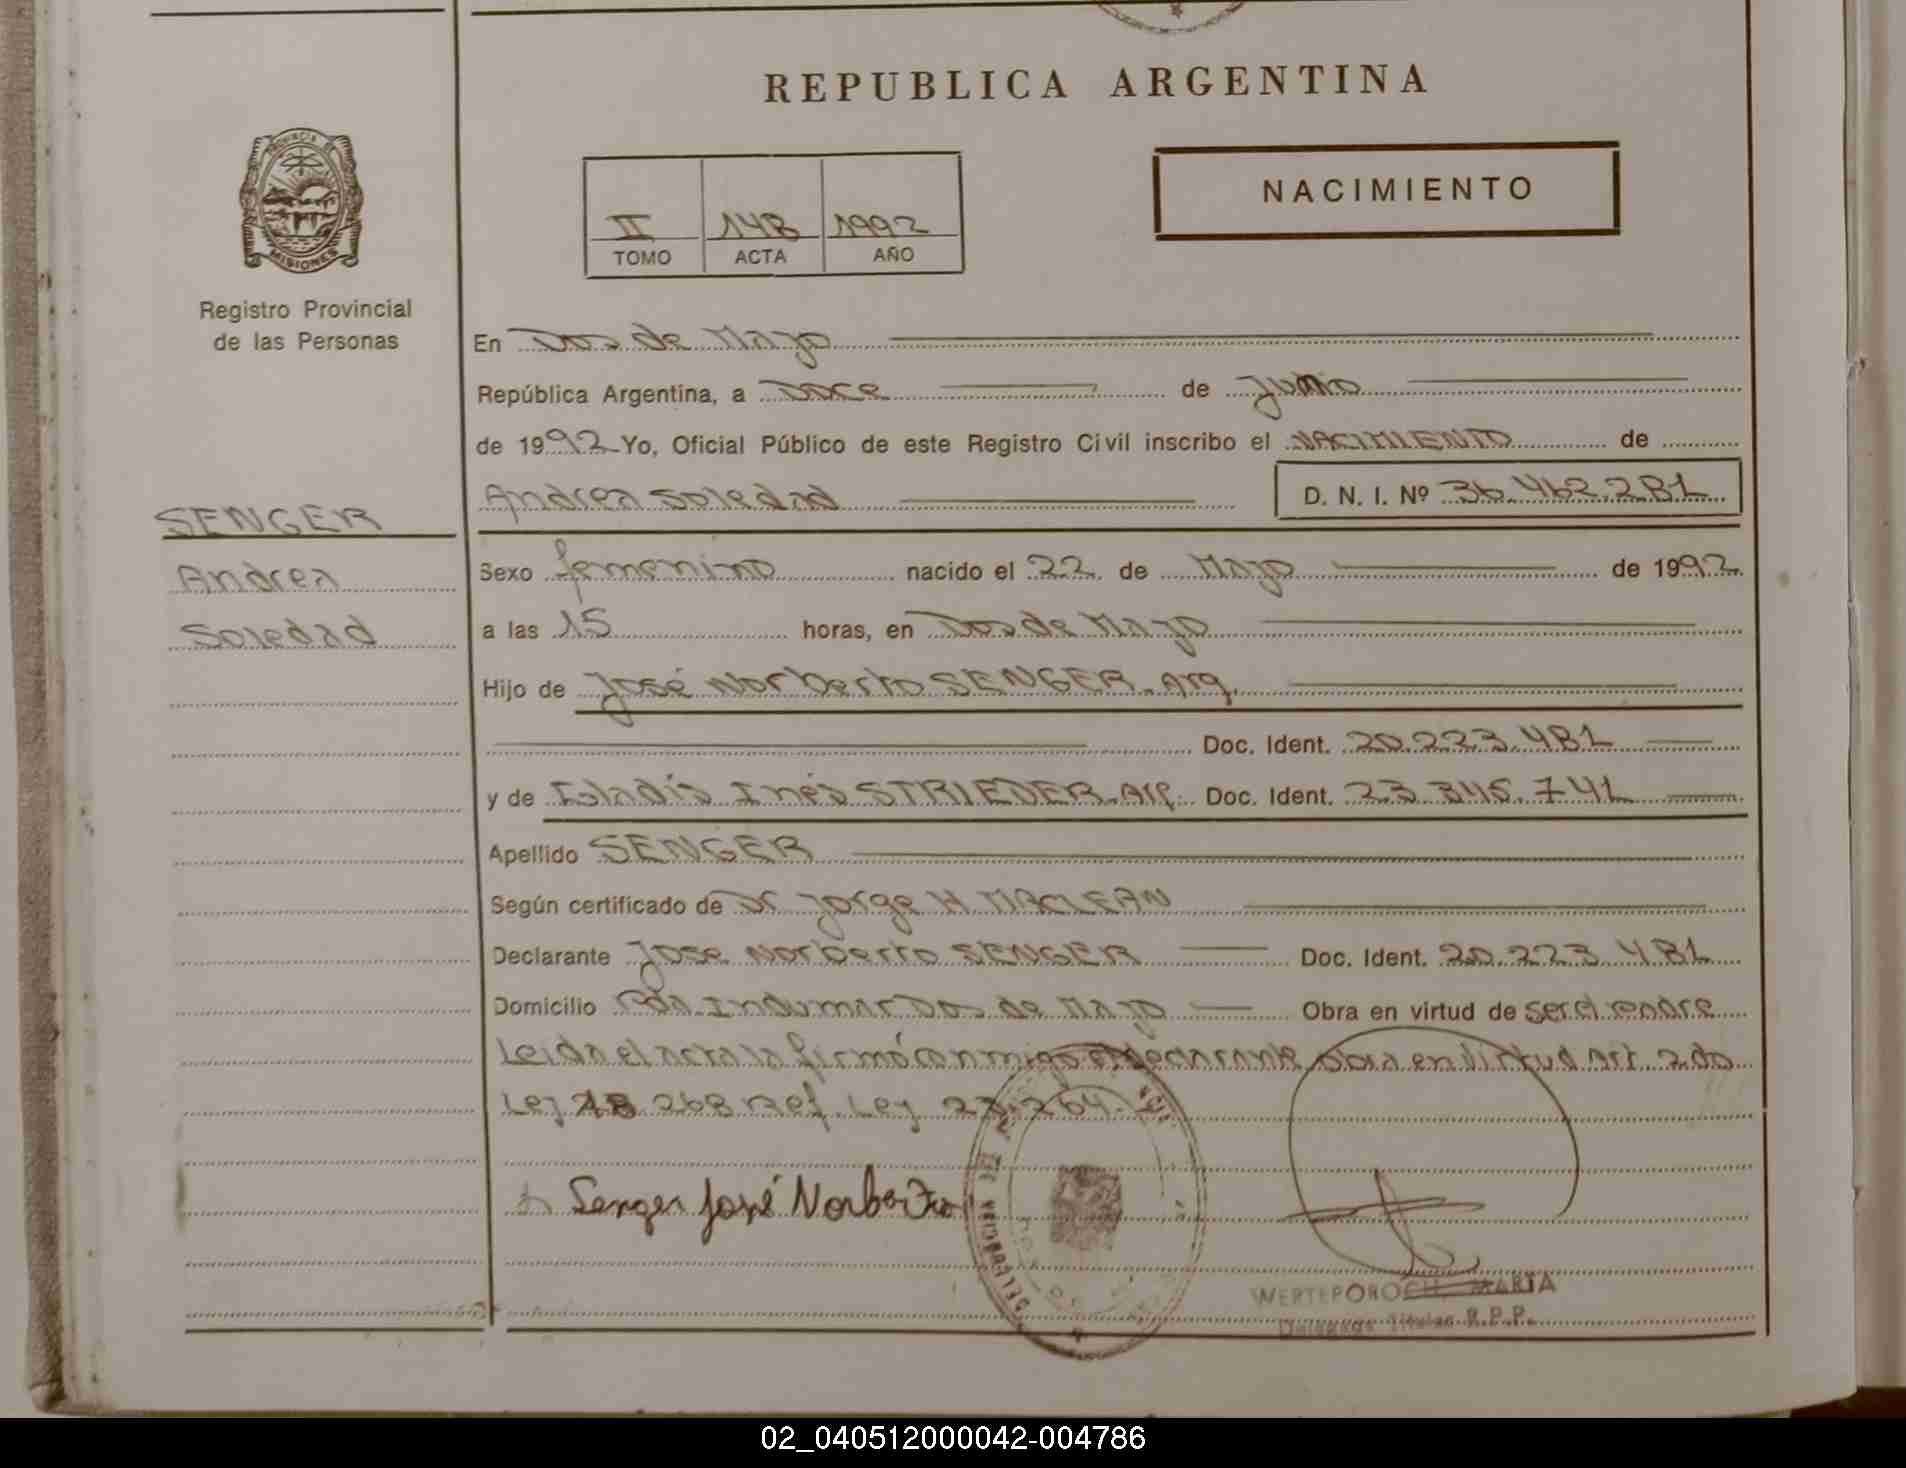 REPUBLICA ARGENTINA
PROVINCIA DE
MISIONES
Registro Provincial
de las Personas
NACIMIENTO
II 148 1992
TOMO ACTA AÑO
En Dos de Mayo
República Argentina, a Doce de Junio
de 1992 Yo, Oficial Público de este Registro Civil inscribo el NACIMIENTO de
Andrea Soledad D. N. I. Nº 36.462.281
SENGER
Andrea
Soledad
Sexo femenino nacido el 22 de Mayo de 1992
a las 15 horas, en Dos de Mayo
Hijo de José Norberto SENGER. Arg.
Doc. Ident. 20.223.481
y de Gladís Inés STRIEDER. Arg. Doc. Ident. 23.345.741
Apellido SENGER
Según certificado de Dr Jorge H MACLEAN
Declarante Jose Norberto SENGER Doc. Ident. 20.223.481
Domicilio Pda. Indumar Dos de Mayo Obra en virtud de ser el padre
Leida el acta la firmó conmigo el declarante obra en virtud Art. 2do
Ley 18 268 Ref. Ley 22.264.
Senger José Norberto
WERTEPOROCH, MARTA
Delegada Titular R.P.P.
02_040512000042-004786